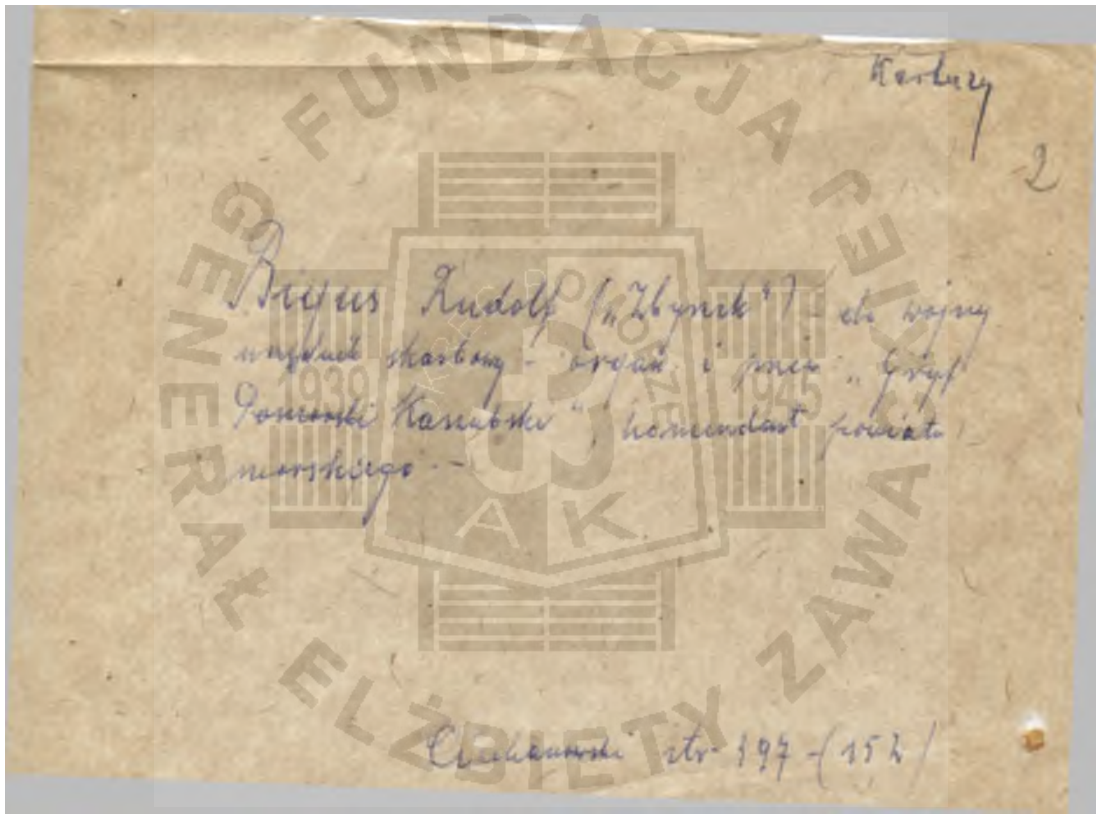 Kartuzy
2
Bigus Rudolf („Zbyszek”) – do wojny
urzędnik skarbowy – organ. i „Gryf
Pomorski Kaszubski”, komendant powiatu
morskiego. –
Ciechanowski str 397 – (152)
FUNDACJA GENERAŁ ELŻBIETY ZAWACKIEJ
1939 1945
AK